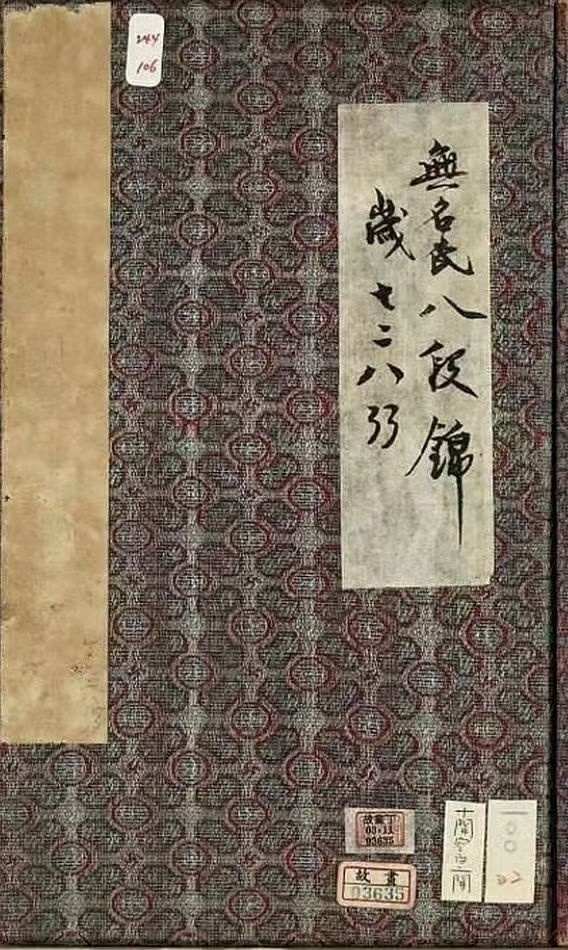 244
106
無名氏八段錦
歲七二八號
故畫丁
03-11
03635
故畫
03635
十開空白一開
一〇〇
22